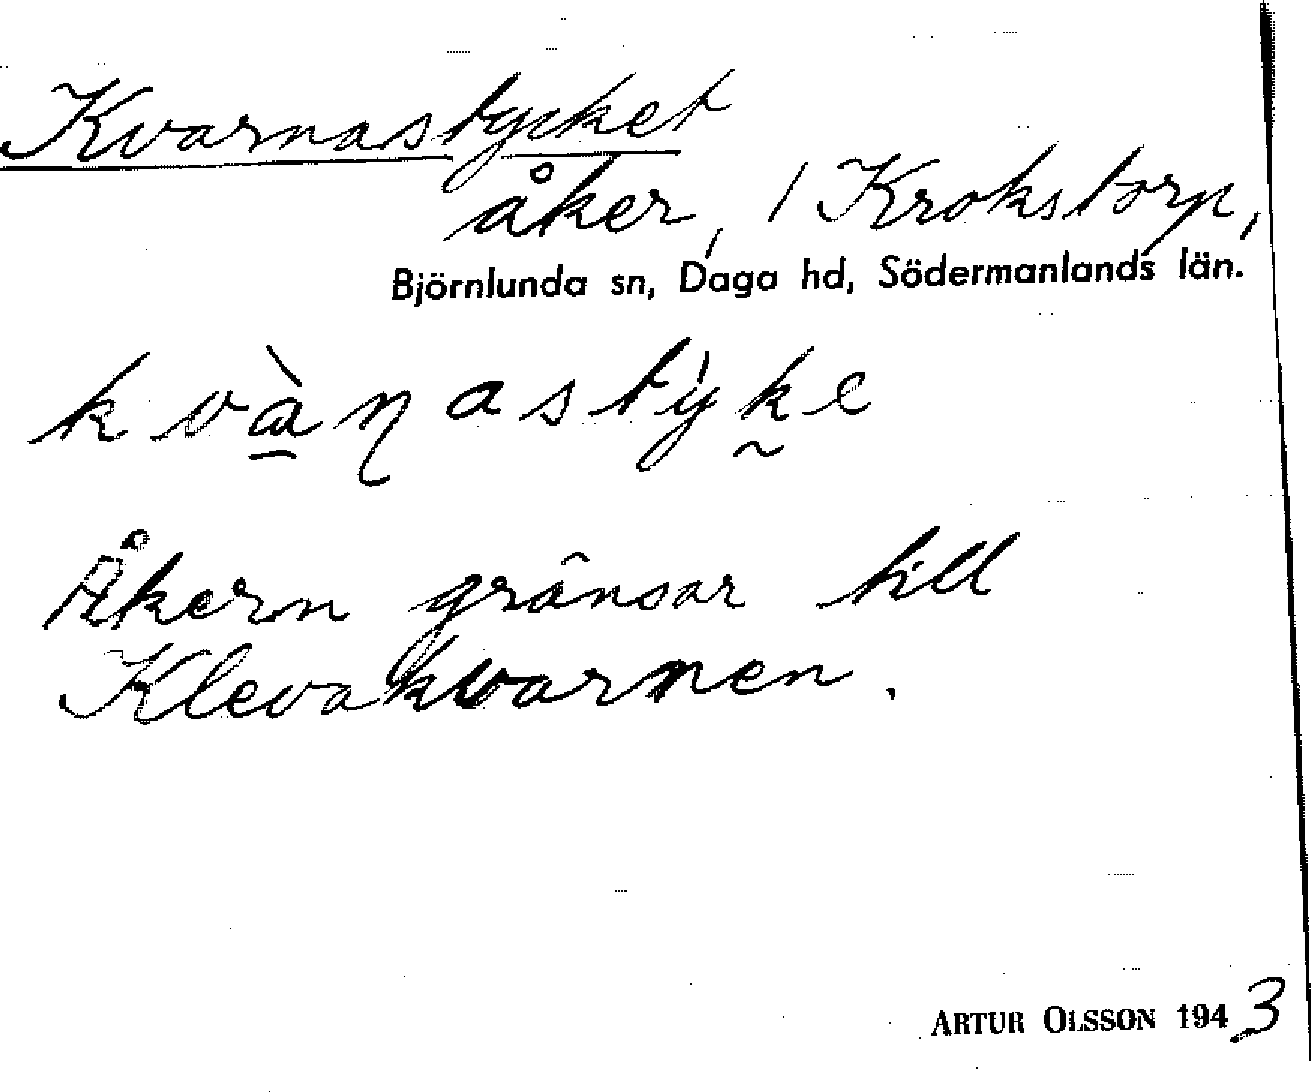 Kvarnastycket
åker, / Krokstorp,
Björnlunda sn, Daga hd, Södermanlands län.
kvàɳastỳke
Åkern gränsar till
Klevakvarnen.
ARTUR OLSSON 1943